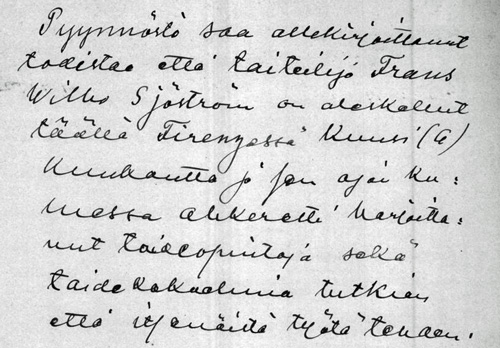 Pyynnöstä saa allekirjoittanut
todistaa että taiteilija Frans
Wilho Sjöström on oleskellut
täällä Firenzessä kuusi (6)
kuukautta ja sen ajan ku=
luessa ahkerasti harjoitta=
nut taideopintoja sekä
taidekokoelmia tutkien
että itsenäistä työtä tehden.